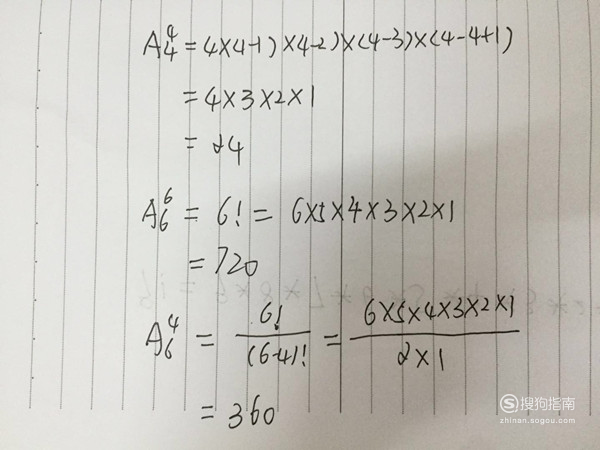 A₄⁴ = 4×4-1)×4-2)×(4-3)×(4-4+1)
= 4×3×2×1
= 24
A₆⁶ = 6! = 6×5×4×3×2×1
= 720
A₆⁴ = 6!/(6-4)! = 6×5×4×3×2×1/2×1
= 360
搜狗指南
zhinan.sogou.com